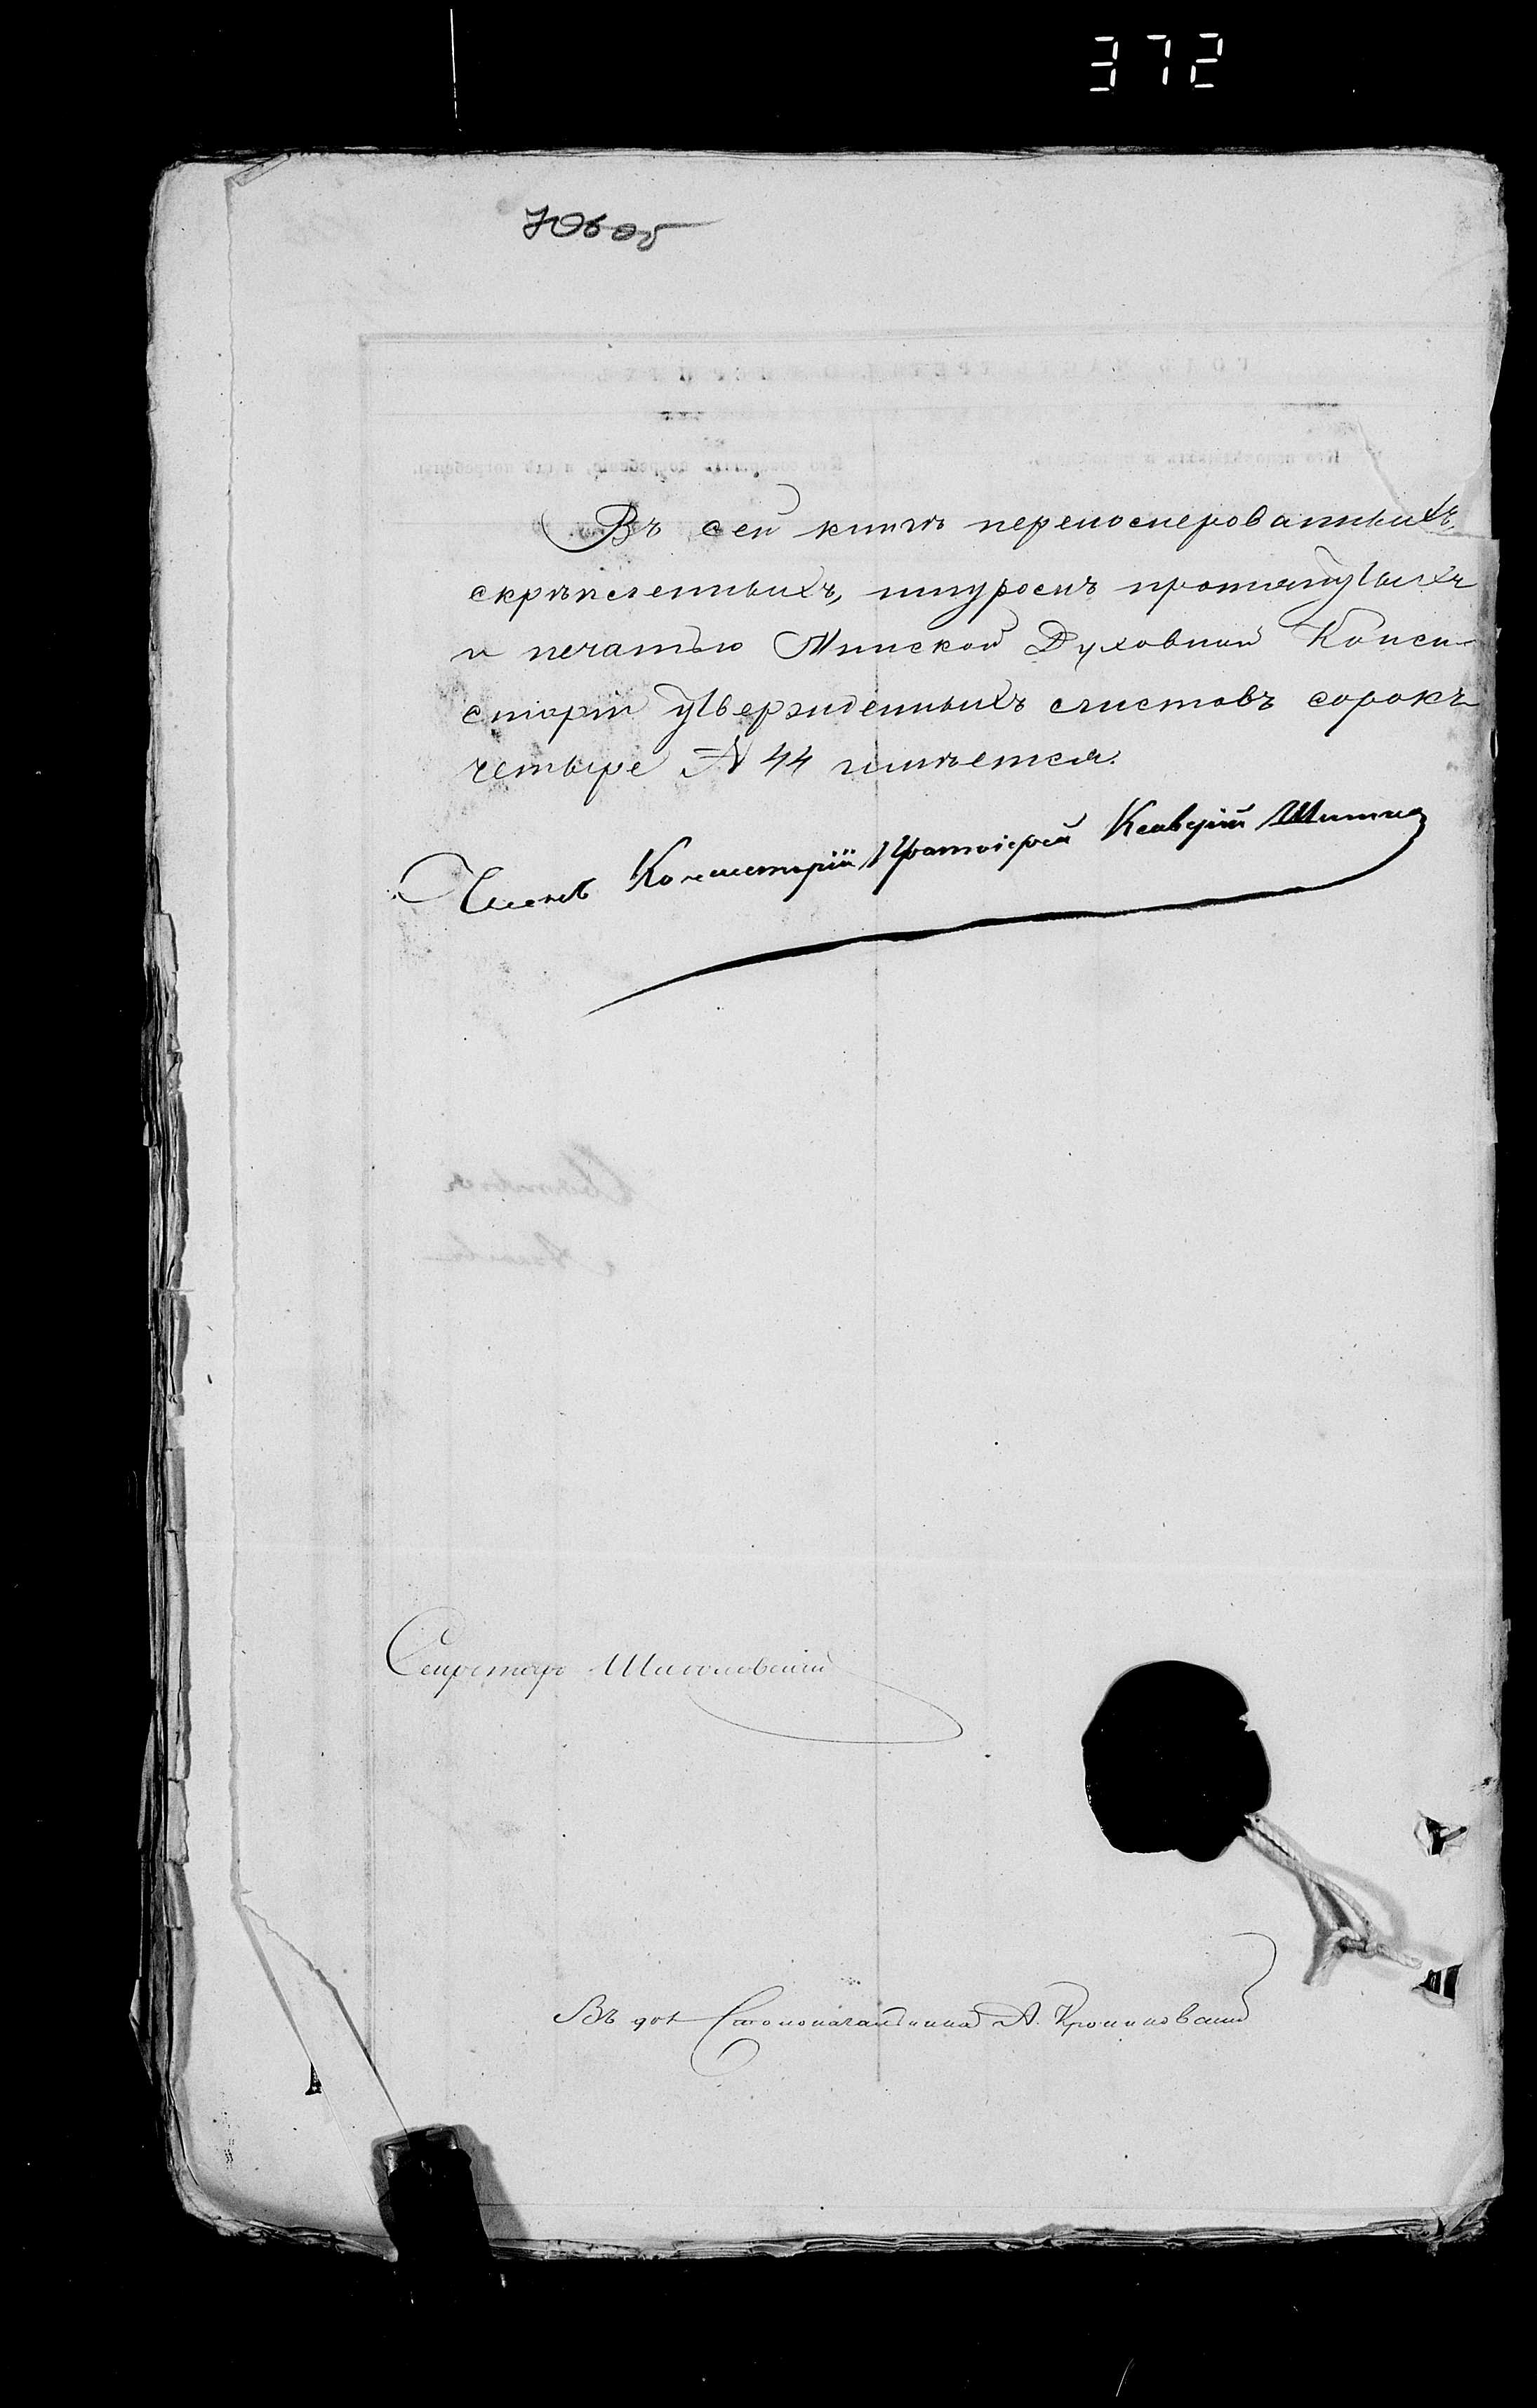 372
Въ сей книгѣ перенумерованныхъ,
скрѣпленныхъ, шнуромъ протянутыхъ
и печатью Минской Духовной Конси-
сторіи утвержденныхъ листовъ сорокъ
четыре № 44 имѣется.
Членъ Консисторіи Протоіерей Ксаверій
Секретарь
Въ дол. Столоначальника А.